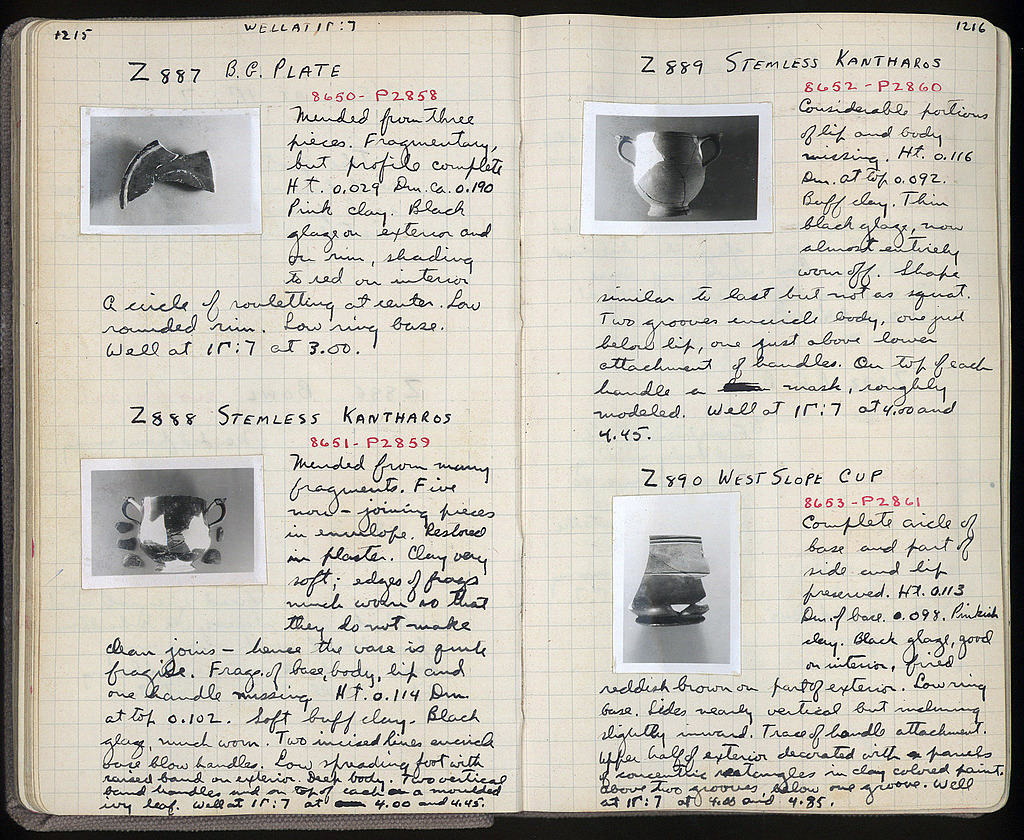 1215
WELL AT ΙΓ:7
Z 887 B.G. PLATE
8650 - P2858
Mended from three
pieces. Fragmentary,
but profile complete
Ht. 0.029 Dm. ca. 0.190
Pink clay. Black
glaze on exterior and
on rim, shading
to red on interior
A circle of rouletting at center. Low
rounded rim. Low ring base.
Well at ΙΓ:7 at 3.00.
Z 888 STEMLESS KANTHAROS
8651 - P2859
Mended from many
fragments. Five
non-joining pieces
in envelope. Restored
in plaster. Clay very
soft; edges of frags
much worn so that
they do not make
clean joins - hence the vase is quite
fragile. Frags. of base, body, lip and
one handle missing. Ht. 0.114 Dm.
at top 0.102. Soft buff clay. Black
glaze, much worn. Two incised lines encircle
base blow handles. Low spreading foot with
raised band on exterior. Deep body. Two vertical
band handles and on top of each a moulded
ivy leaf. Well at ΙΓ:7 at 4.00 and 4.45.
1216
Z 889 STEMLESS KANTHAROS
8652 - P2860
Considerable portions
of lip and body
missing. Ht. 0.116
Dm. at top 0.092.
Buff clay. Thin
black glaze, now
almost entirely
worn off. Shape
similar to last but not as squat.
Two grooves encircle body, one just
below lip, one just above lower
attachment of handles. On top of each
handle a mask, roughly
modeled. Well at ΙΓ:7 at 4.00 and
4.45.
Z 890 WEST SLOPE CUP
8653 - P2861
Complete circle of
base and part of
side and lip
preserved. Ht. 0.113
Dm. of base 0.098. Pinkish
clay. Black glaze, good
on interior, fired
reddish brown on part of exterior. Low ring
base. Sides nearly vertical but inclining
slightly inward. Trace of handle attachment.
Upper half of exterior decorated with panels
of concentric rectangles in clay colored paint.
above two grooves, below one groove. Well
at ΙΓ:7 at 4.00 and 4.85.